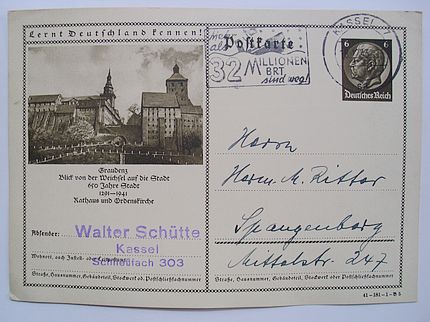 Lernt Deutschland kennen!
Postkarte
KASSEL 7
mehr
als
32 MILLIONEN
BRT
sind weg!
6 6
Deutsches Reich
Graudenz
Blick von der Weichsel auf die Stadt
650 Jahre Stadt
1291-1941
Rathaus und Ordenskirche
Absender:
Walter Schütte
Kassel
Schließfach 303
Wohnort, auch Zustell- oder
Straße, Hausnummer, Gebäudeteil, Stockwerk od. Postschließfachnummer
Herrn
Herm. M. Ritter
Spangenberg
Mittelstr. 247
Straße, Hausnummer, Gebäudeteil, Stockwerk oder Postschließfachnummer
41-181-1-B5